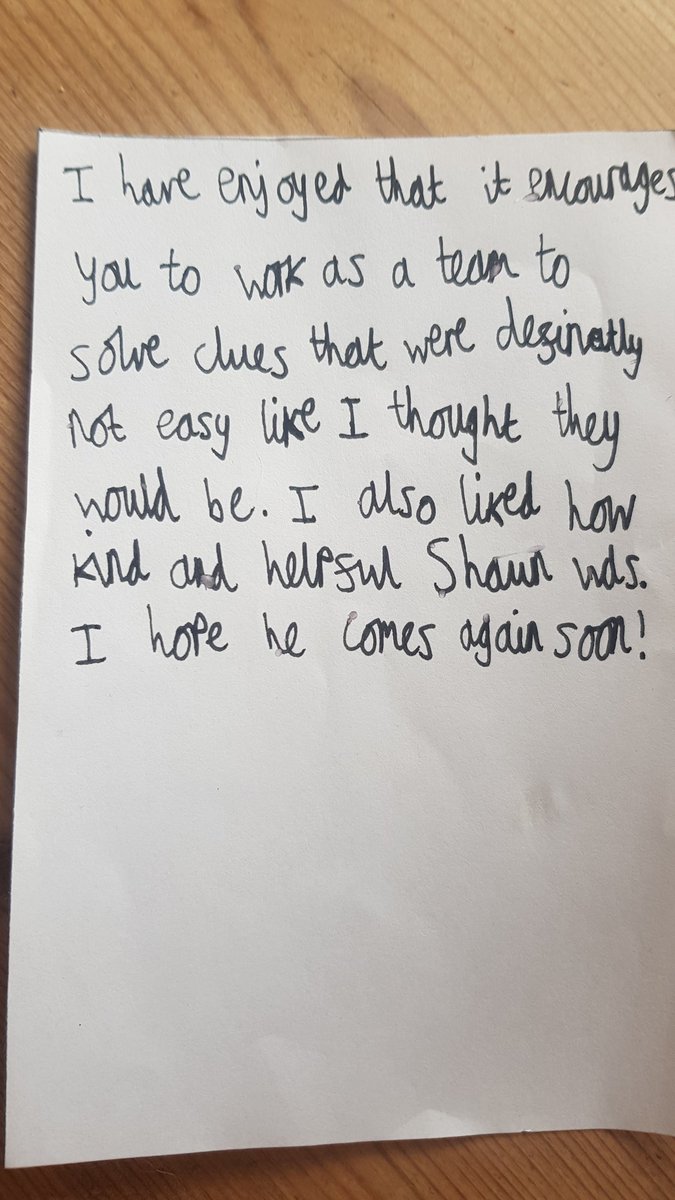 I have enjoyed that it encourages
you to work as a team to
solve clues that were definatly
not easy like I thought they
would be. I also liked how
kind and helpful Shaun was.
I hope he comes again soon!